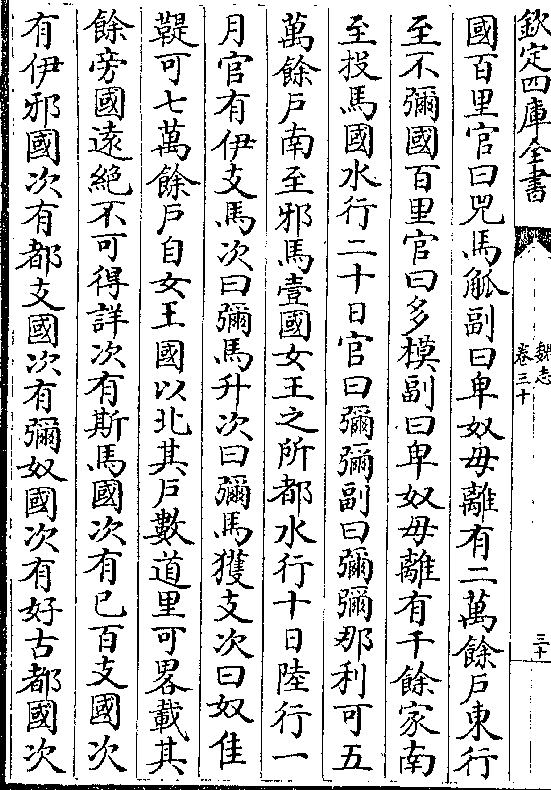 欽定四庫全書
魏志
卷三十
三十
國百里官曰兕馬觚副曰卑奴毋離有二萬餘戶東行
至不彌國百里官曰多模副曰卑奴毋離有千餘家南
至投馬國水行二十日官曰彌彌副曰彌彌那利可五
萬餘戶南至邪馬壹國女王之所都水行十日陸行一
月官有伊支馬次曰彌馬升次曰彌馬獲支次曰奴佳
鞮可七萬餘戶自女王國以北其戶數道里可畧載其
餘旁國遠絶不可得詳次有斯馬國次有已百支國次
有伊邪國次有都支國次有彌奴國次有好古都國次